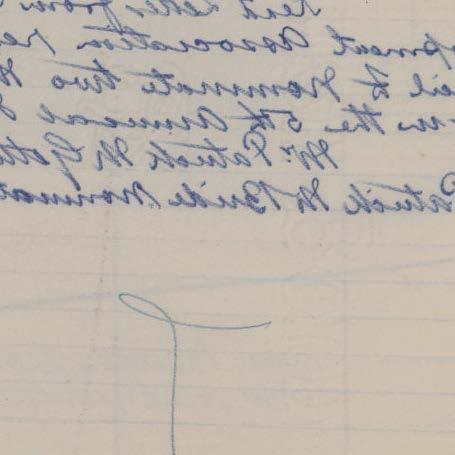 Read Letter from
opment Association re
cil to nominate two
on the 5th Annual
Mr. Patrick McGett
Patrick McBride nominat